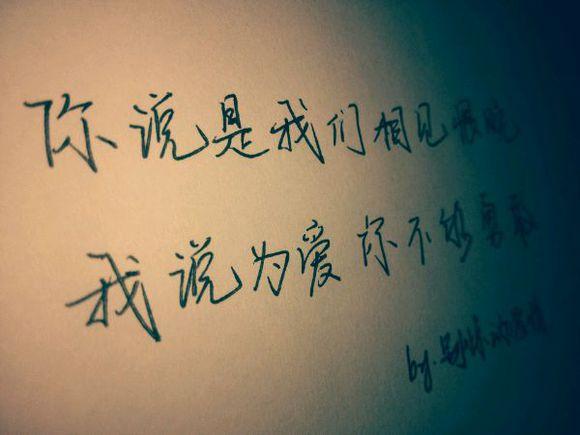 你说是我们相见恨晚
我说为爱你不够勇敢
by.